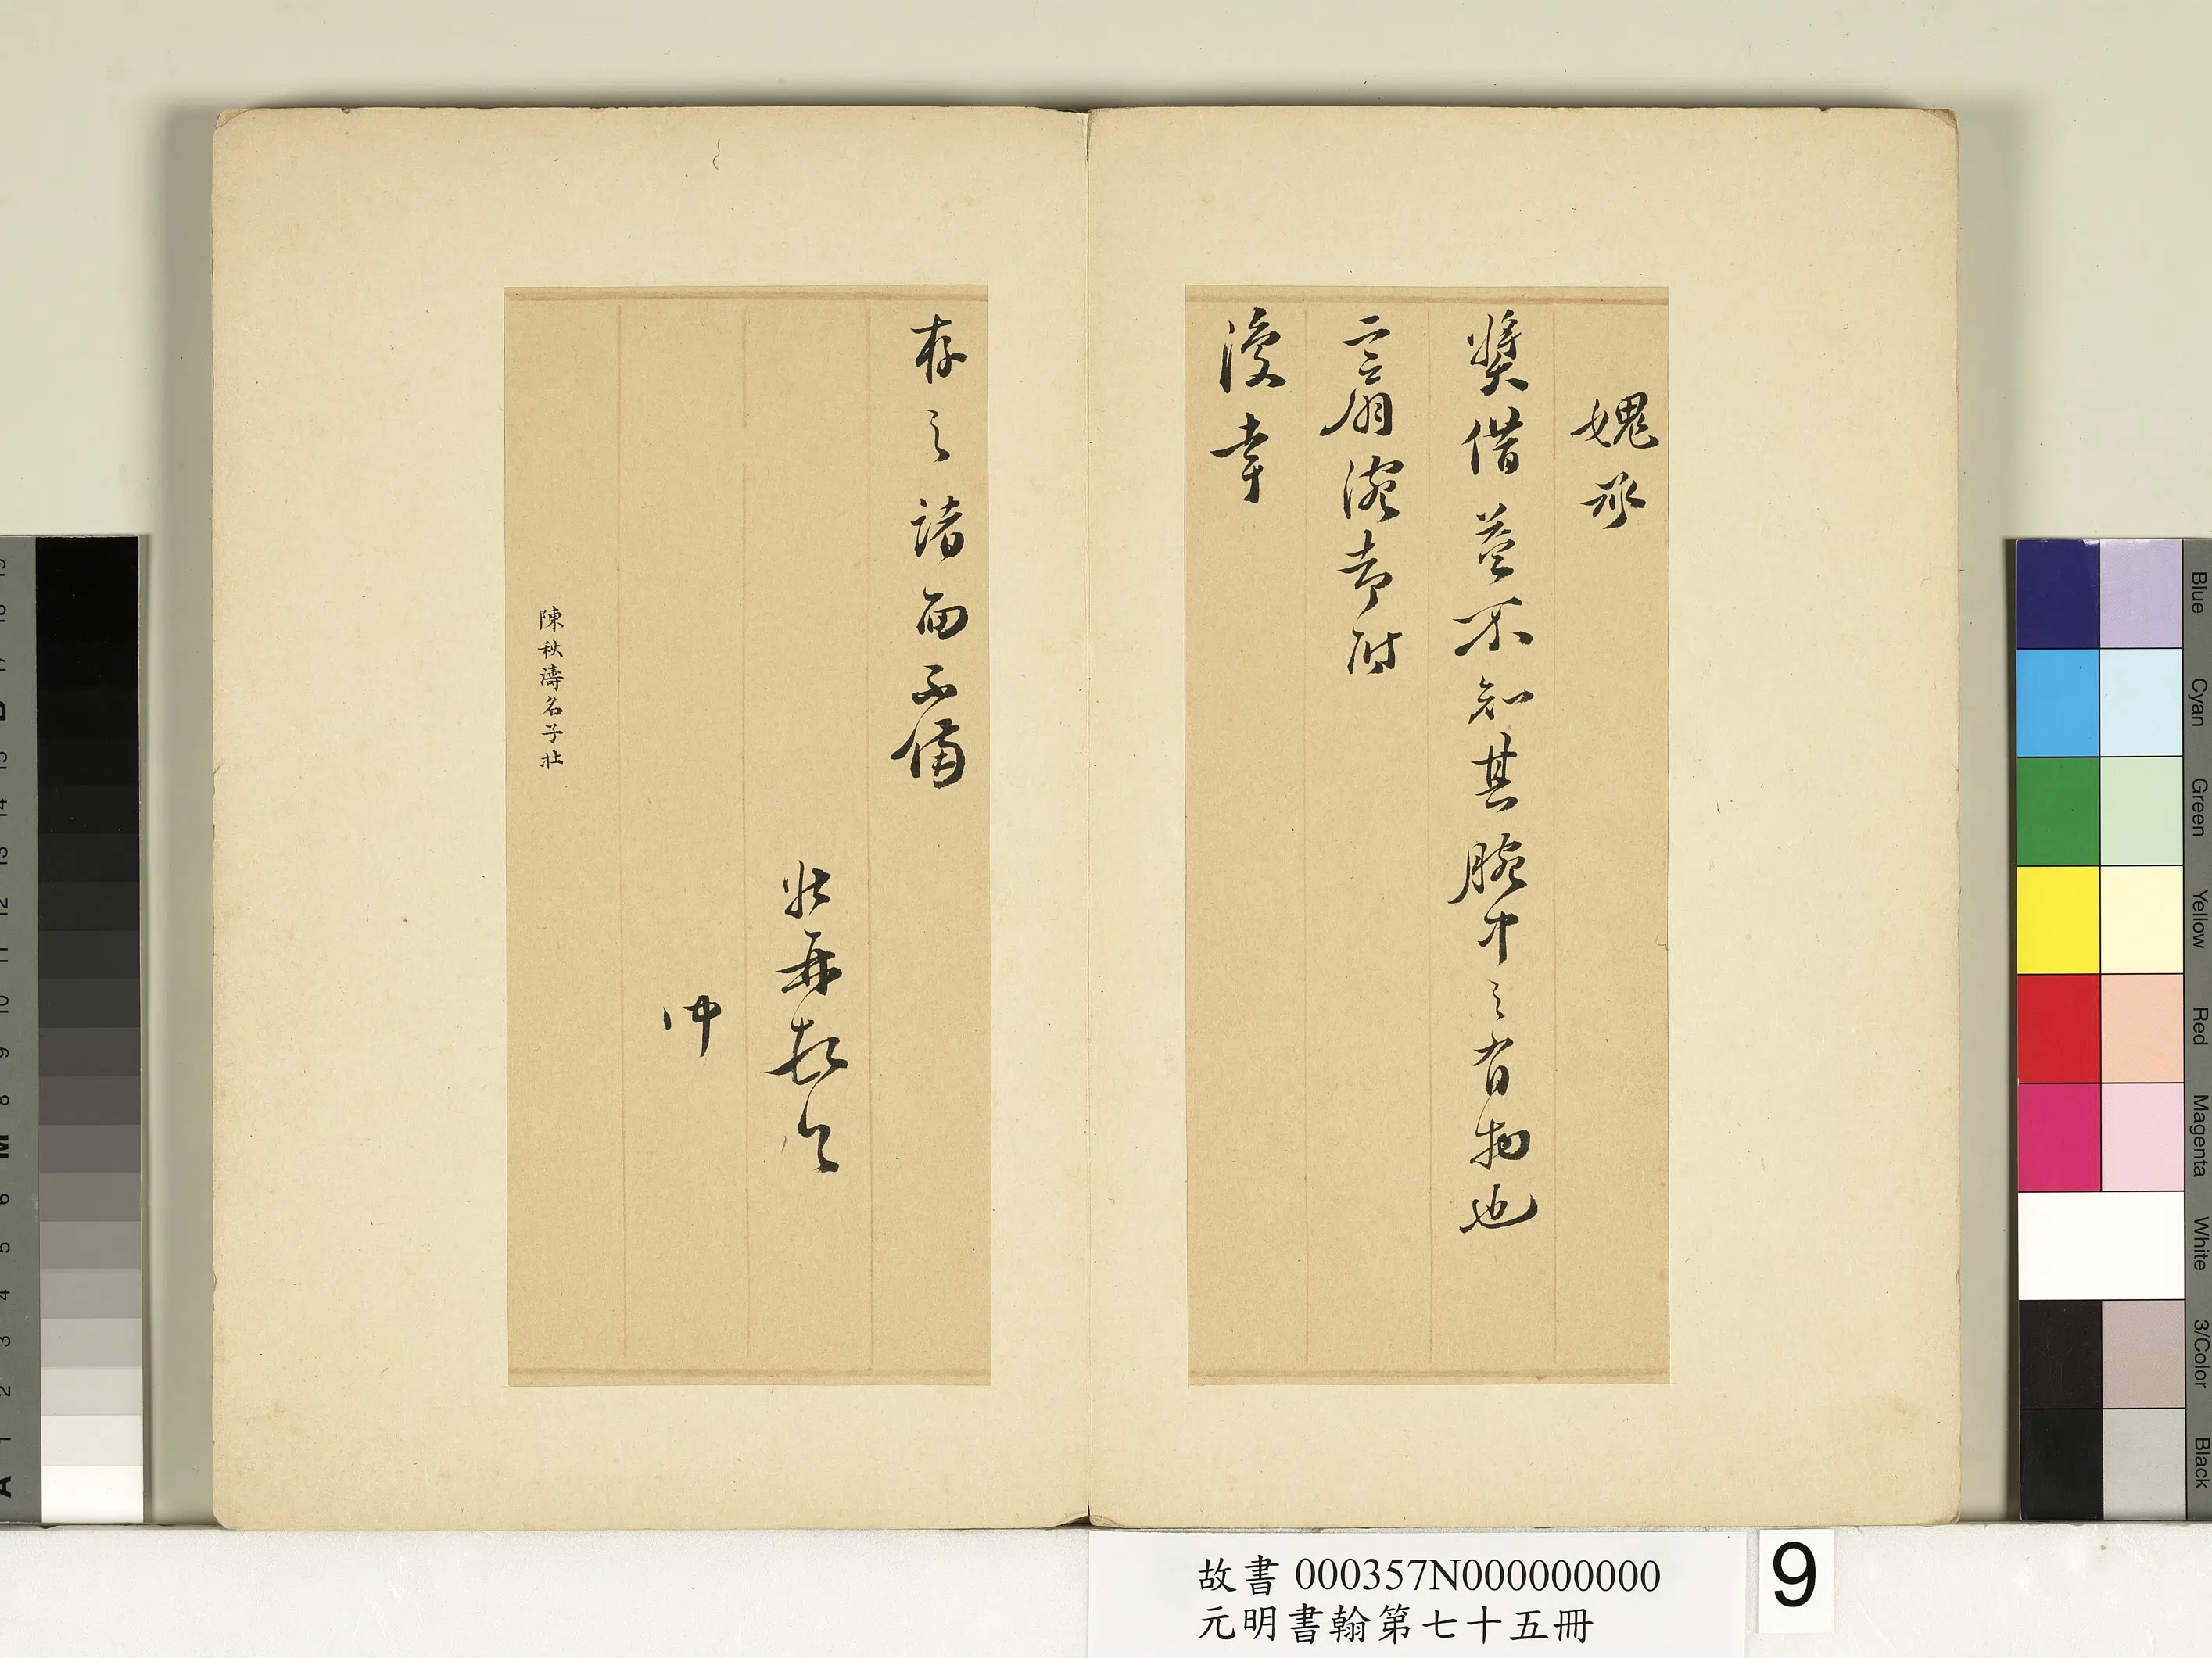 媿承
獎借益不知其腕中之有物也
二三扇涴去附
復幸
存之諸面不備
壯再頓首
沖
陳秋濤名子壯
故書 000357N000000000
元明書翰第七十五冊
9
Blue
Cyan
Green
Yellow
Red
Magenta
White
3/Color
Black
A 1 2 3 4 5 6 M 8 9 10 11 12 13 14 15 B 17 18 19